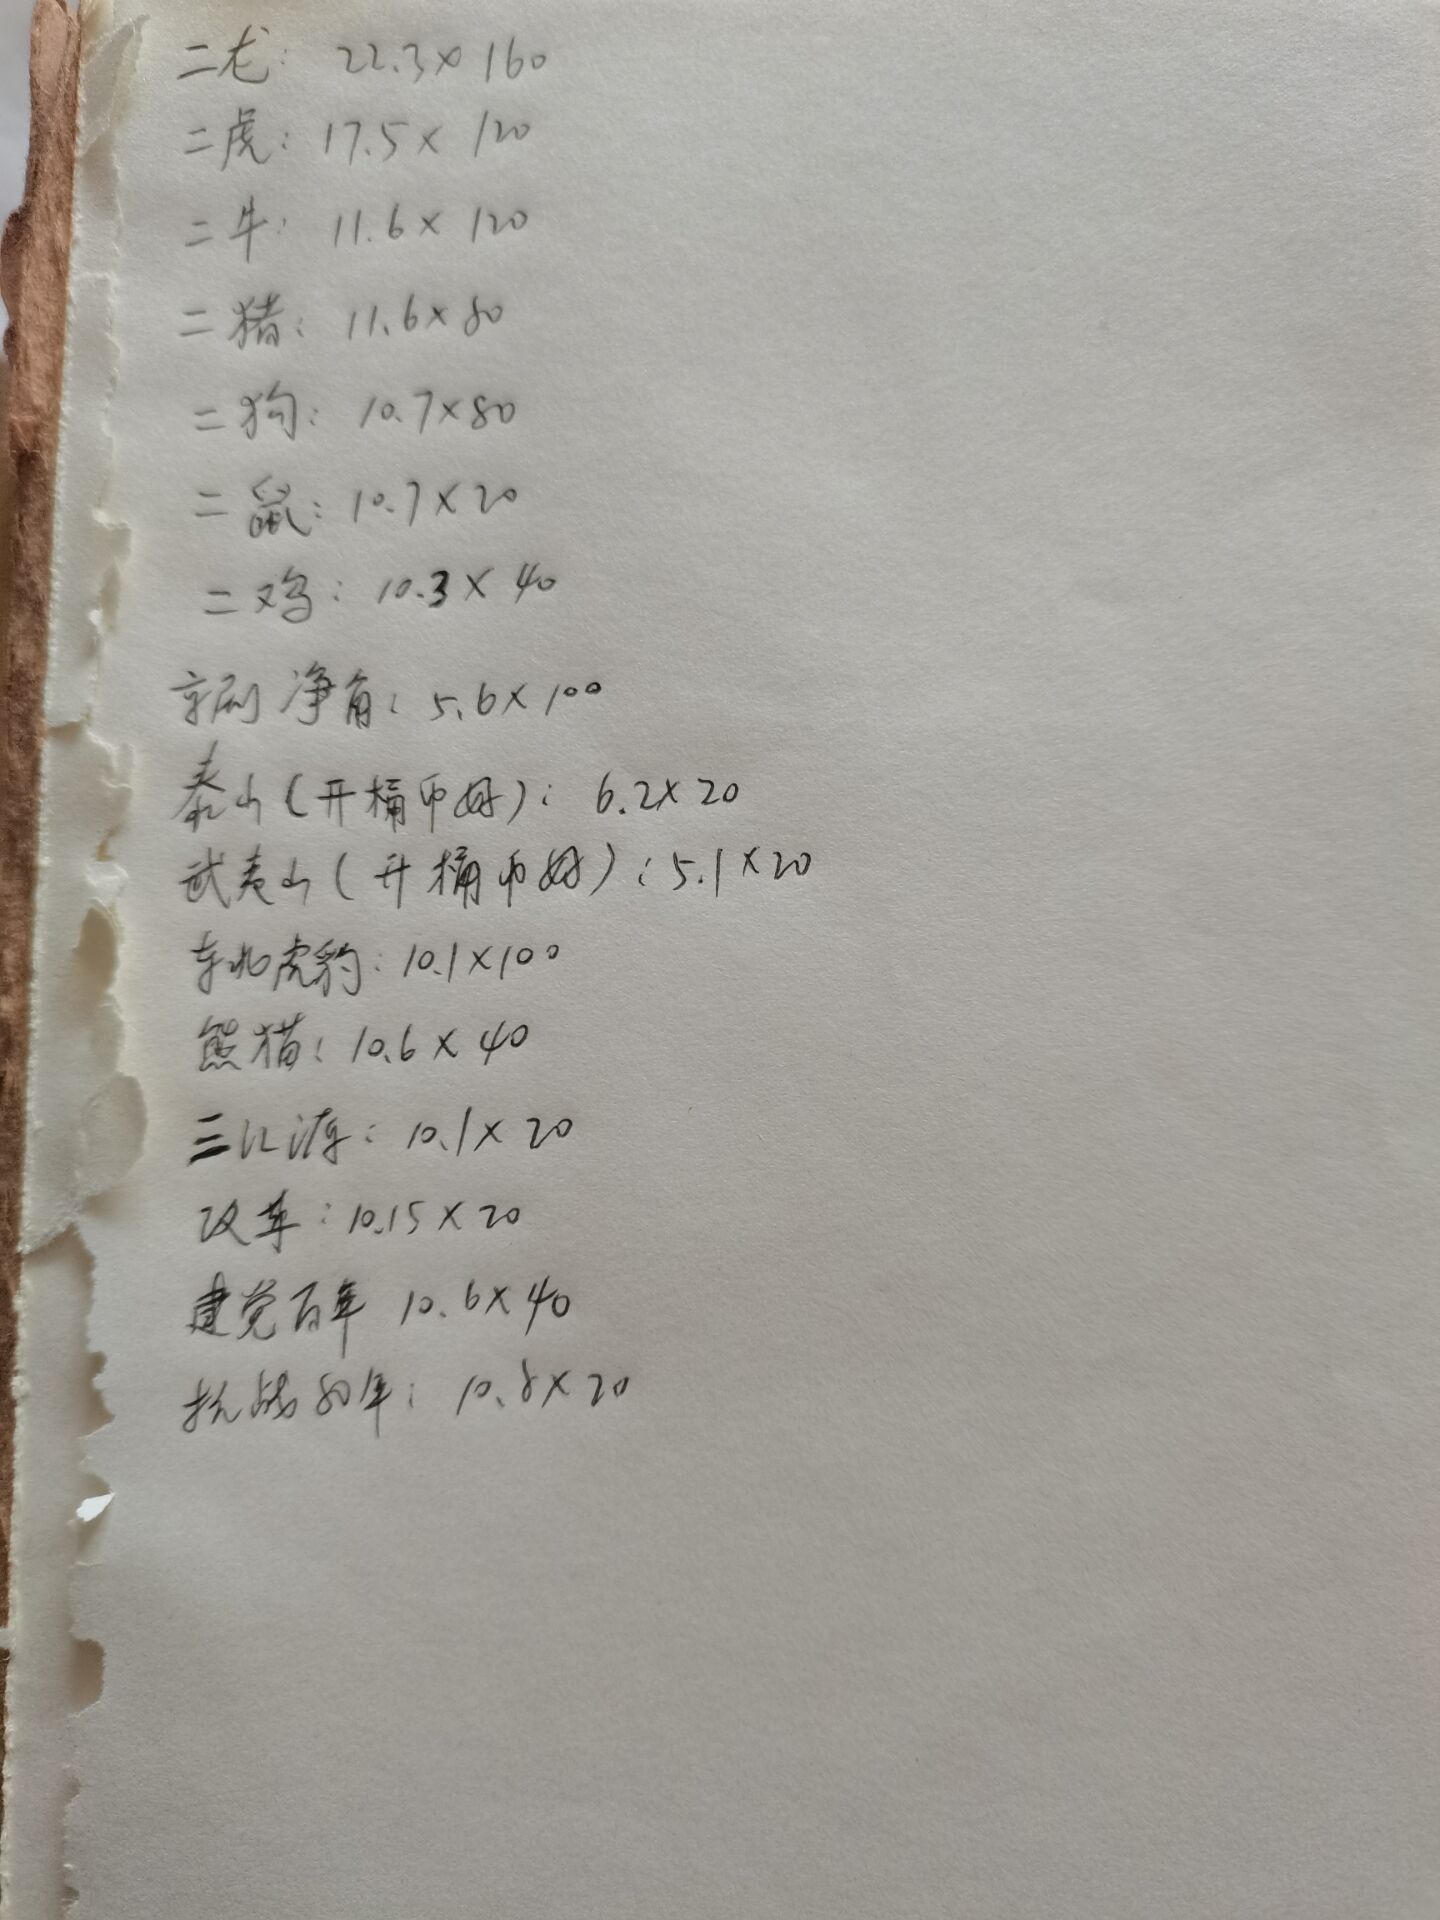 二龙: 22.3×160
二虎: 17.5×120
二牛: 11.6×120
二猪: 11.6×80
二狗: 10.7×80
二鼠: 10.7×20
二鸡: 10.3×40
京剧 净角: 5.6×100
泰山(开桶币好): 6.2×20
武夷山(开桶币好): 5.1×20
东北虎豹: 10.1×100
熊猫: 10.6×40
三江源: 10.1×20
改革: 10.15×20
建党百年 10.6×40
抗战80年: 10.8×20